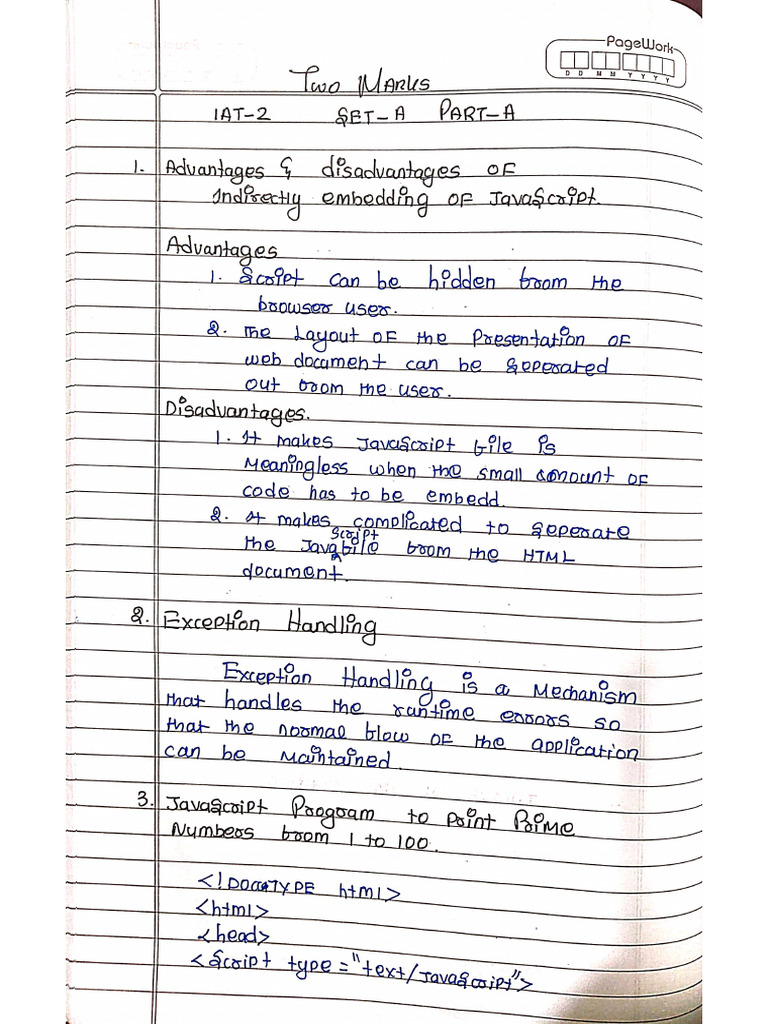 PageWork
D D M M Y Y Y Y
Two Marks
IAT-2 SET-A PART-A
1. Advantages & disadvantages of
Indirectly embedding of JavaScript.
Advantages
1. Script can be hidden from the
browser user.
2. The Layout of the Presentation of
web document can be seperated
out from the user.
Disadvantages.
1. It makes JavaScript file is
Meaningless when the small amount of
code has to be embedd.
2. It makes complicated to seperate
the Java script file from the HTML
document.
2. Exception Handling
Exception Handling is a Mechanism
that handles the runtime errors so
that the normal flow of the application
can be Maintained.
3. JavaScript Program to print Prime
Numbers from 1 to 100.
<!DOCTYPE html>
<html>
<head>
<Script type="text/JavaScript">